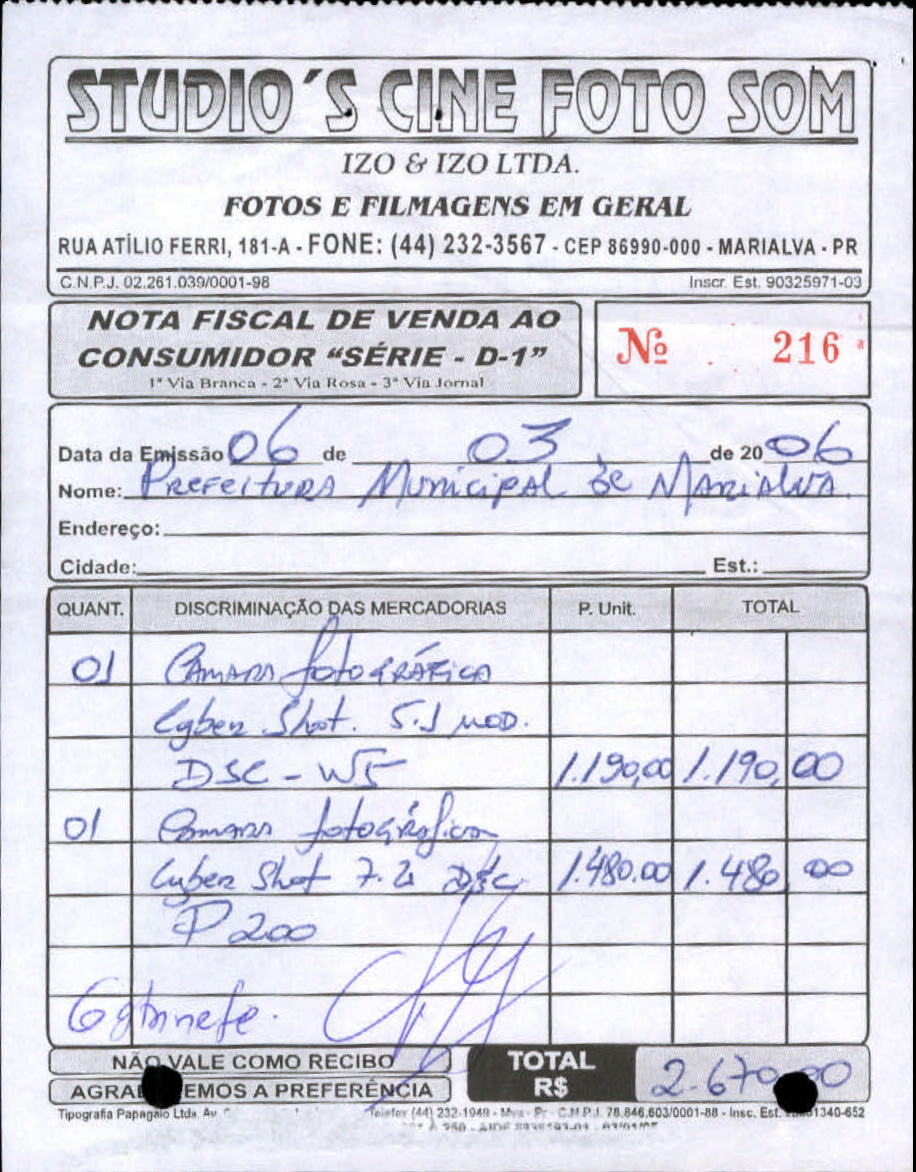 STUDIO´S CINE FOTO SOM
IZO & IZO LTDA.
FOTOS E FILMAGENS EM GERAL
RUA ATÍLIO FERRI, 181-A - FONE: (44) 232-3567 - CEP 86990-000 - MARIALVA - PR
C.N.P.J. 02.261.039/0001-98 Inscr. Est. 90325971-03
NOTA FISCAL DE VENDA AO
CONSUMIDOR “SÉRIE - D-1”
1ª Via Branca - 2ª Via Rosa - 3ª Via Jornal
Nº 216
Data da Emissão 06 de 03 de 2006
Nome: Prefeitura Municipal de Marialva
Endereço:
Cidade: Est.:
QUANT. DISCRIMINAÇÃO DAS MERCADORIAS P. Unit. TOTAL
01 Câmara fotográfica
Cyber Shot. 5.1 MOD.
DSC - W5 1.190,00 1.190,00
01 Camara fotográfica
Cyber Shot 7.2 DSC 1.480.00 1.480 00
P200
NÃO VALE COMO RECIBO
AGRA EMOS A PREFERÊNCIA
TOTAL
R$ 2.670,00
Tipografia Papagaio Ltda. Av. Telefax (44) 232-1949 - Mva - Pr - C.N.P.J. 78.846.603/0001-88 - Insc. Est. 1340-652